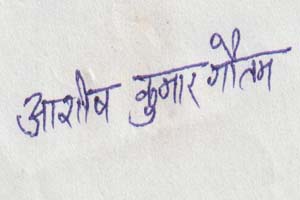 आशीष कुमार गौतम